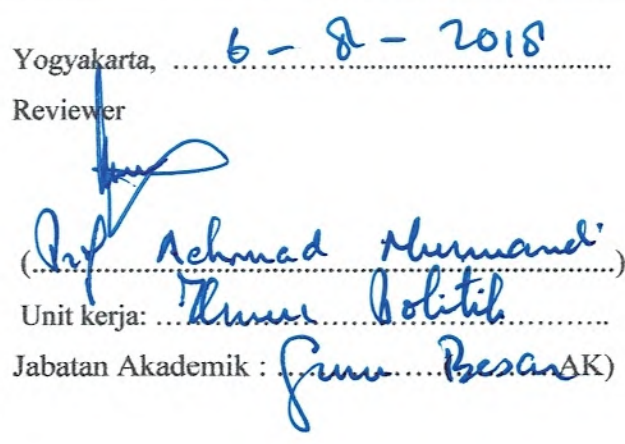 Yogyakarta, 6 - 8 - 2018
Reviewer
(Prof Achmad Nurmandi)
Unit kerja: Ilmu Politik
Jabatan Akademik : Guru Besar AK)